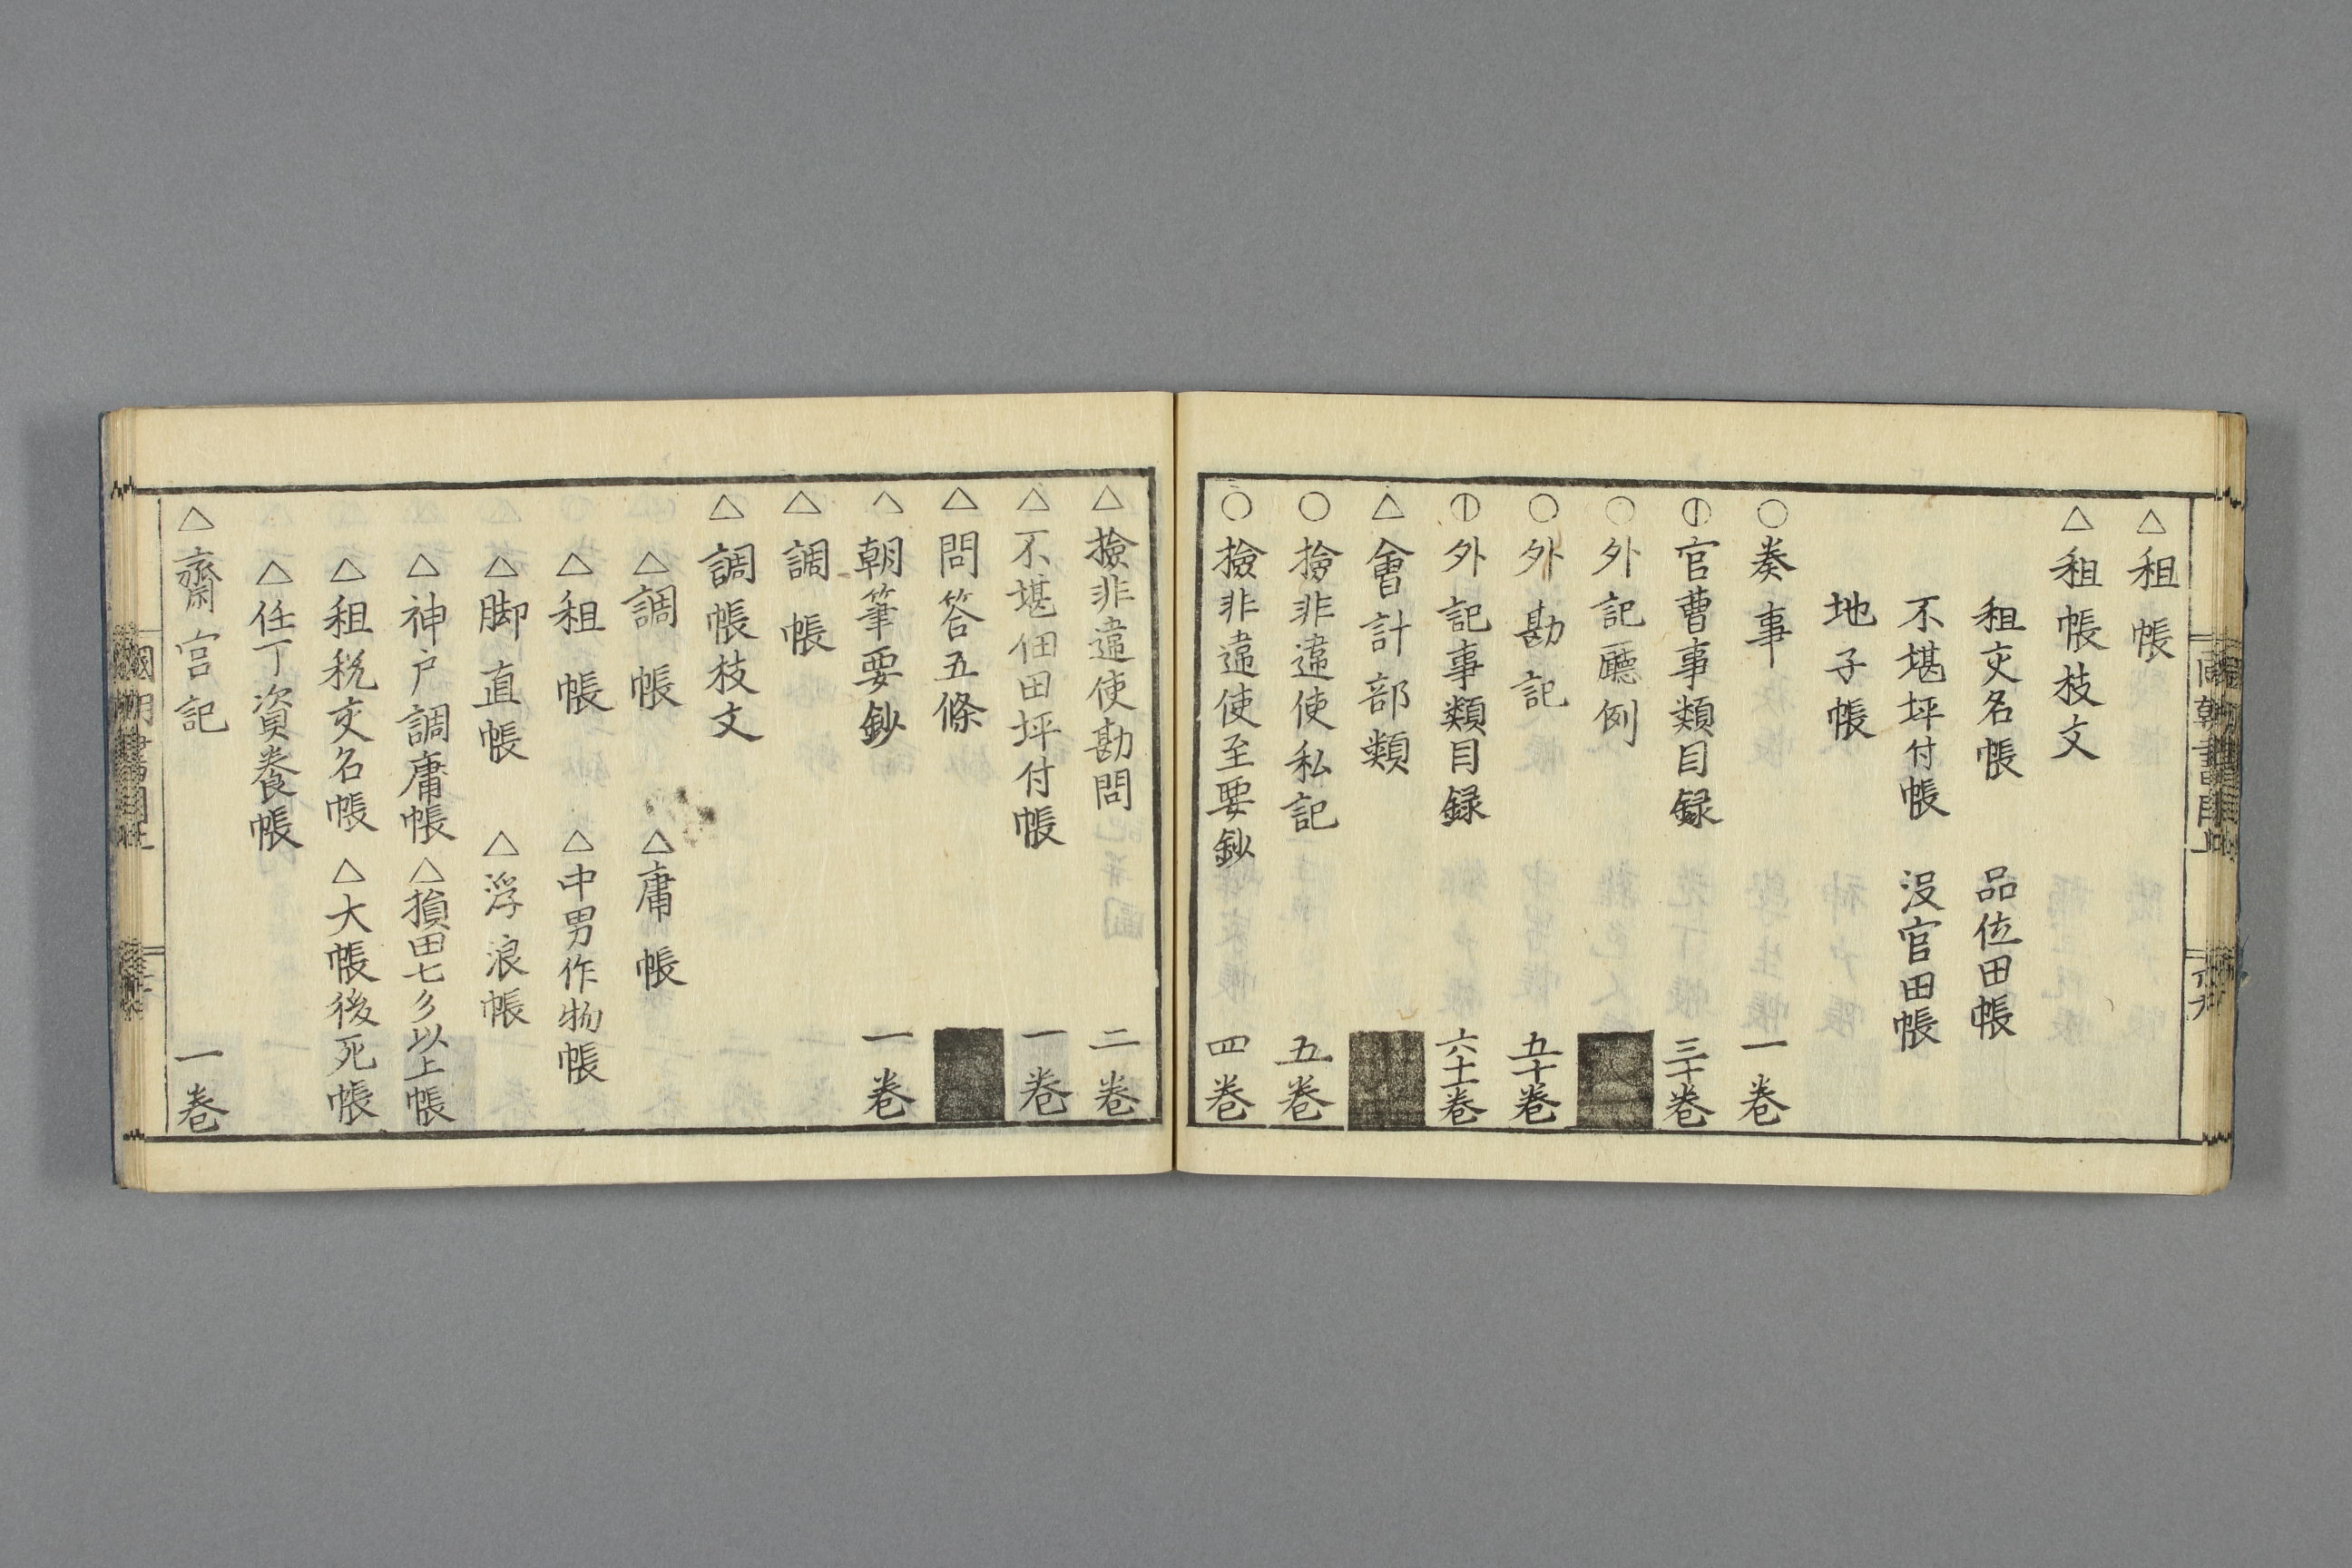 △租帳
△租帳枝文
租交名帳 品位田帳
不堪坪付帳 没官田帳
地子帳
○奏事 一卷
官曹事類目録 三十卷
○外記廳例
○外勘記 五十卷
外記事類目録 六十一卷
△會計部類
○撿非違使私記 五卷
○撿非違使至要鈔 四卷
△撿非違使勘問 二卷
△不堪佃田坪付帳 一卷
△問答五條
△朝筆要鈔 一卷
△調帳
△調帳枝文
△調帳 △庸帳
△租帳 △中男作物帳
△脚直帳 △浮浪帳
△神戸調庸帳 △損田七分以上帳
△租税交名帳 △大帳後死帳
△仕丁資養帳
△齋宮記 一卷